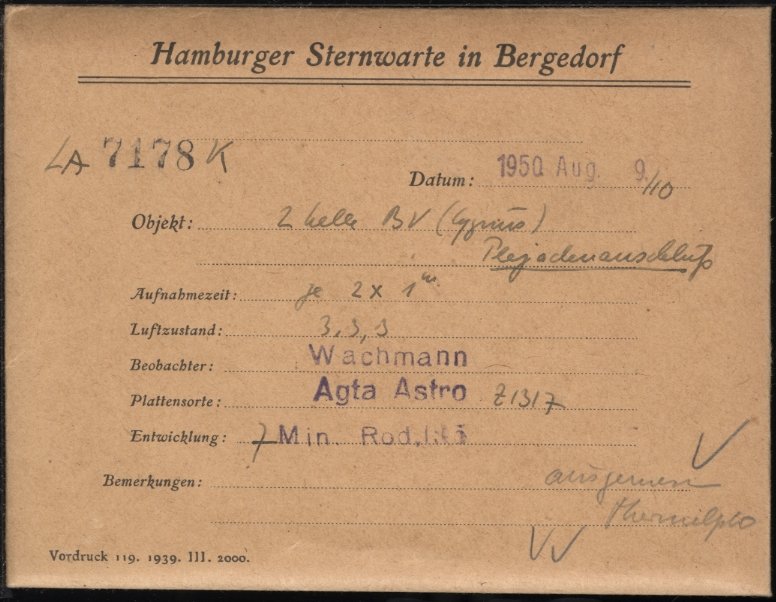 Hamburger Sternwarte in Bergedorf
LA 7178 K
Datum: 1950 Aug. 9./10
Objekt: 2 helle BV (Cygnus)
Plejadenanschluß
Aufnahmezeit: je 2 x 1ᵐ
Luftzustand: 3, 3, 3
Beobachter: Wachmann
Plattensorte: Agfa Astro Z1317
Entwicklung: 7 Min. Rod.
Bemerkungen: ausgemessen
Vordruck 119. 1939. III. 2000.